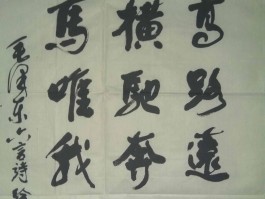 高路遠
橫馳奔
馬唯我
毛泽东六言詩